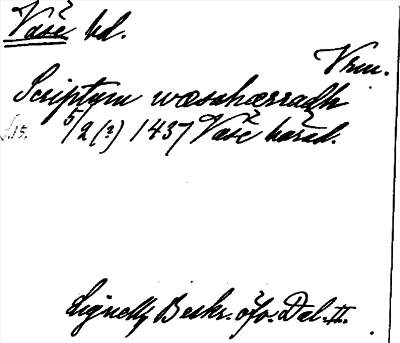 Väse hd.
Vrm.
Scriptum wæsehærradh
5/2 (?) 1437 Väse härad.
Lignell, Beskr. öfv. Dal. II.